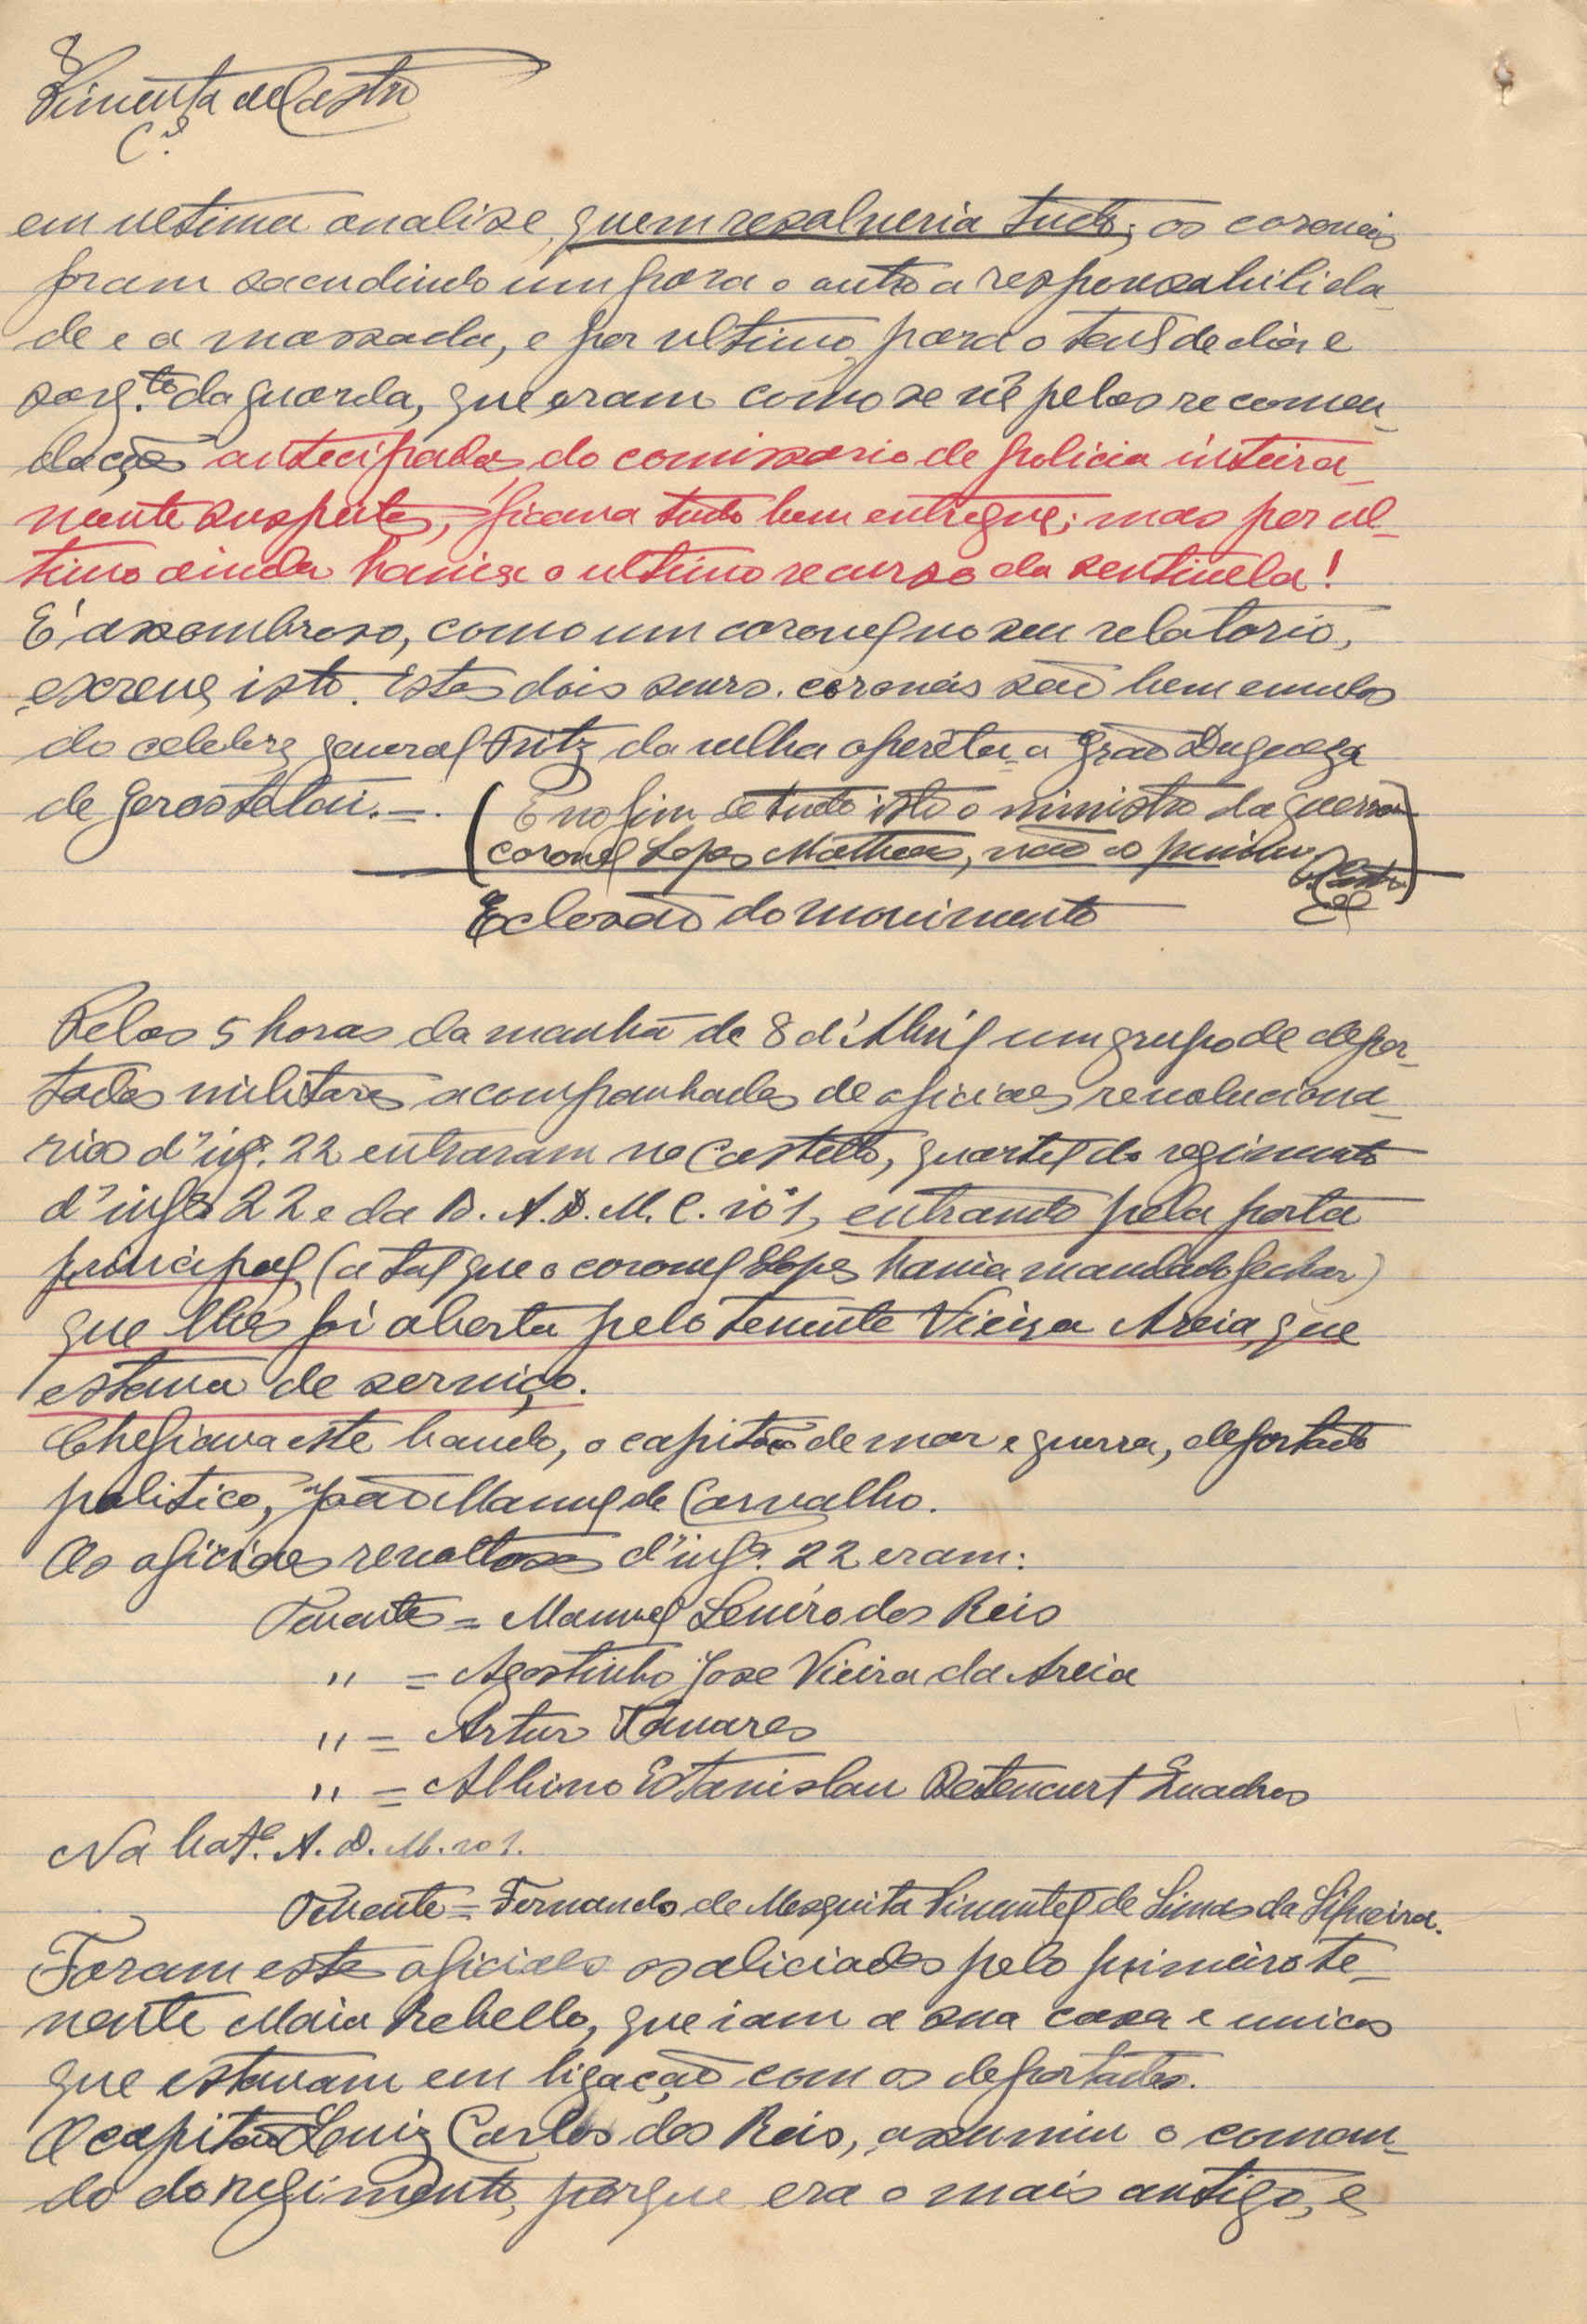 8
Pimenta de Castro
C.el
em ultima analise, quem resolveria tudo; os coroneis
foram sacudindo um para o outro a responsabilida-
de e a massada, e por ultimo para o tene de dia e
sarg.to da guarda, que eram como se vê pelas recomen-
dações antecipadas do comissario de policia inteira-
mente suspeitos, ficava tudo bem entregue; mas por ul-
timo ainda havia o ultimo recurso da sentinela!
É assombroso, como um coronel no seu relatorio,
escreve isto. Estes dois snrs. coroneis são bem emulos
do celebre general Fritz da velha opereta a Grão Duqueza
de Gerostetai. = . (E no fim de tudo isto o ministro da guerra
coronel Lopes Matheus, não os puniu. P. Castro
Cel)
Eclosão do movimento
Pelas 5 horas da manhã de 8 d'Abril um grupo de depor-
tados militares acompanhados de oficiaes revoluciona-
rios d'infª. 22 entraram no Castello, quartel do regimento
d'infª 22 e da B. A. D. M. C. nº 1, entrando pela porta
principal (a tal que o coronel Lopes havia mandado fechar)
que lhes foi aberta pelo tenente Vieira Areia, que
estava de serviço.
Chefiava este bando, o capitão de mar e guerra, deportado
politico, João Manuel de Carvalho.
Os oficiaes revoltosos d'infª. 22 eram:
Tenente = Manuel Lenéro dos Reis
" = Agostinho Jose Vieira da Areia
" = Artur Tavares
" = Albino Estanislau Betencurt Quadros
Na batª. A. D. M. nº 1.
Tenente = Fernando de Mesquita Pimentel de Simas da Silveira.
Foram estes oficiaes os aliciados pelo primeiro te-
nente Maia Rebello, que iam a sua casa e unicos
que estavam em ligação com os deportados.
O capitão Luiz Carlos dos Reis, assumiu o coman-
do do regimento, porque era o mais antigo, e